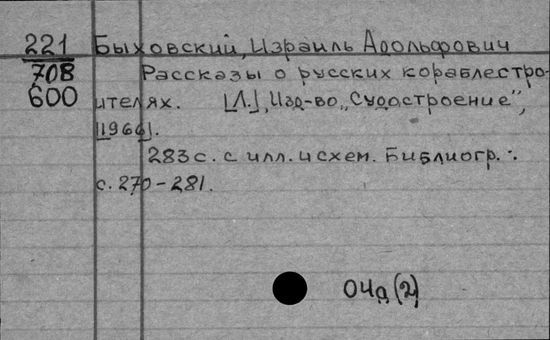 221 Быховский, Израиль Адольфович
708 Рассказы о русских кораблестро-
600 ителях. [Л.], Изд-во „Судостроение”,
[1966].
283 с. с илл. и схем. Библиогр.:
с. 270-281.
04д (2)